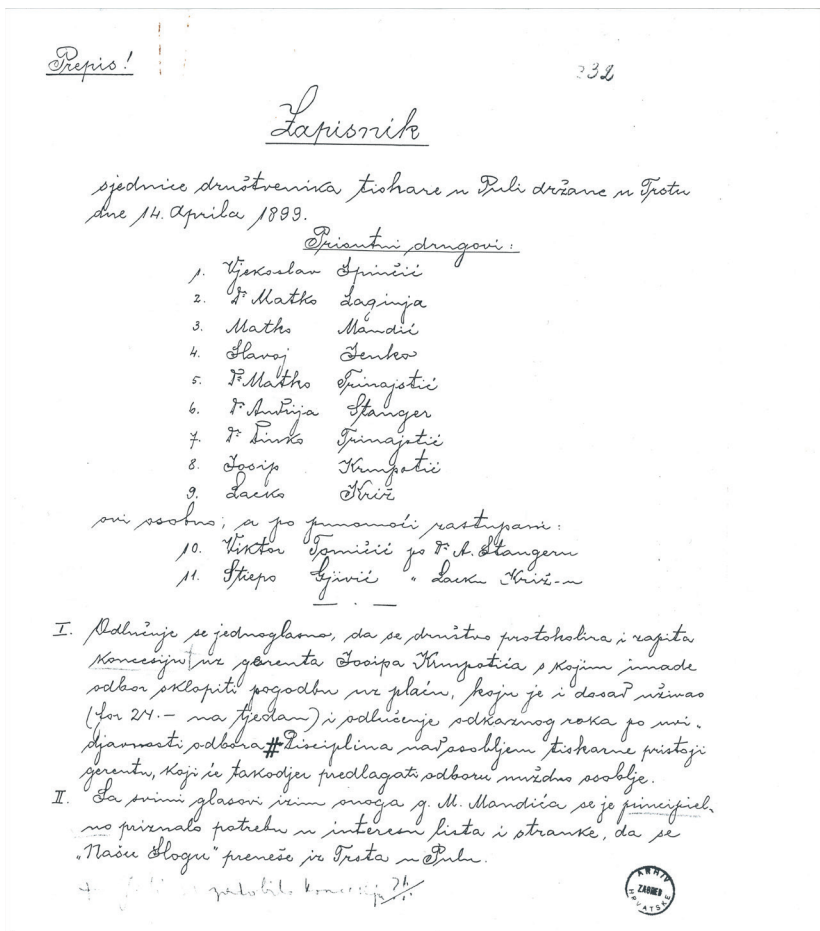 Prepis!
32
Zapisnik
sjednice društvenika tiskare u Puli držane u Trstu
dne 14. Aprila 1899.
Prisutni drugovi:
1. Vjekoslav Spinčić
2. Dr Matko Laginja
3. Matko Mandić
4. Slavoj Jenko
5. Dr Matko Trinajstić
6. Dr Andrija Stanger
7. Dr Dinko Trinajstić
8. Josip Krmpotić
9. Lacko Križ
ovi osobno; a po punomoći zastupani:
10. Viktor Tomičić po Dr A. Stangeru
11. Stiepo Gjivić " Lacku Križ-u
I. Odlučuje se jednoglasno, da se društvo protokolira i zapita
koncesiju uz gerenta Josipa Krmpotića s kojim imade
odbor sklopiti pogodbu uz plaću, koju je i dosad uživao
(for 24.- na tjedan) i odlučenje odkaznog roka po uvi-
djavnosti odbora # Disciplina nad osobljem tiskarne pristoji
gerentu, koji će takodjer predlagati odboru nuždno osoblje.
II. Sa svimi glasovi izim onoga g. M. Mandića se je principiel-
no priznalo potrebu u interesu lista i stranke, da se
„Našu Slogu" prenese iz Trsta u Pulu.
koncesiju
ARHIV HRVATSKE ZAGREB